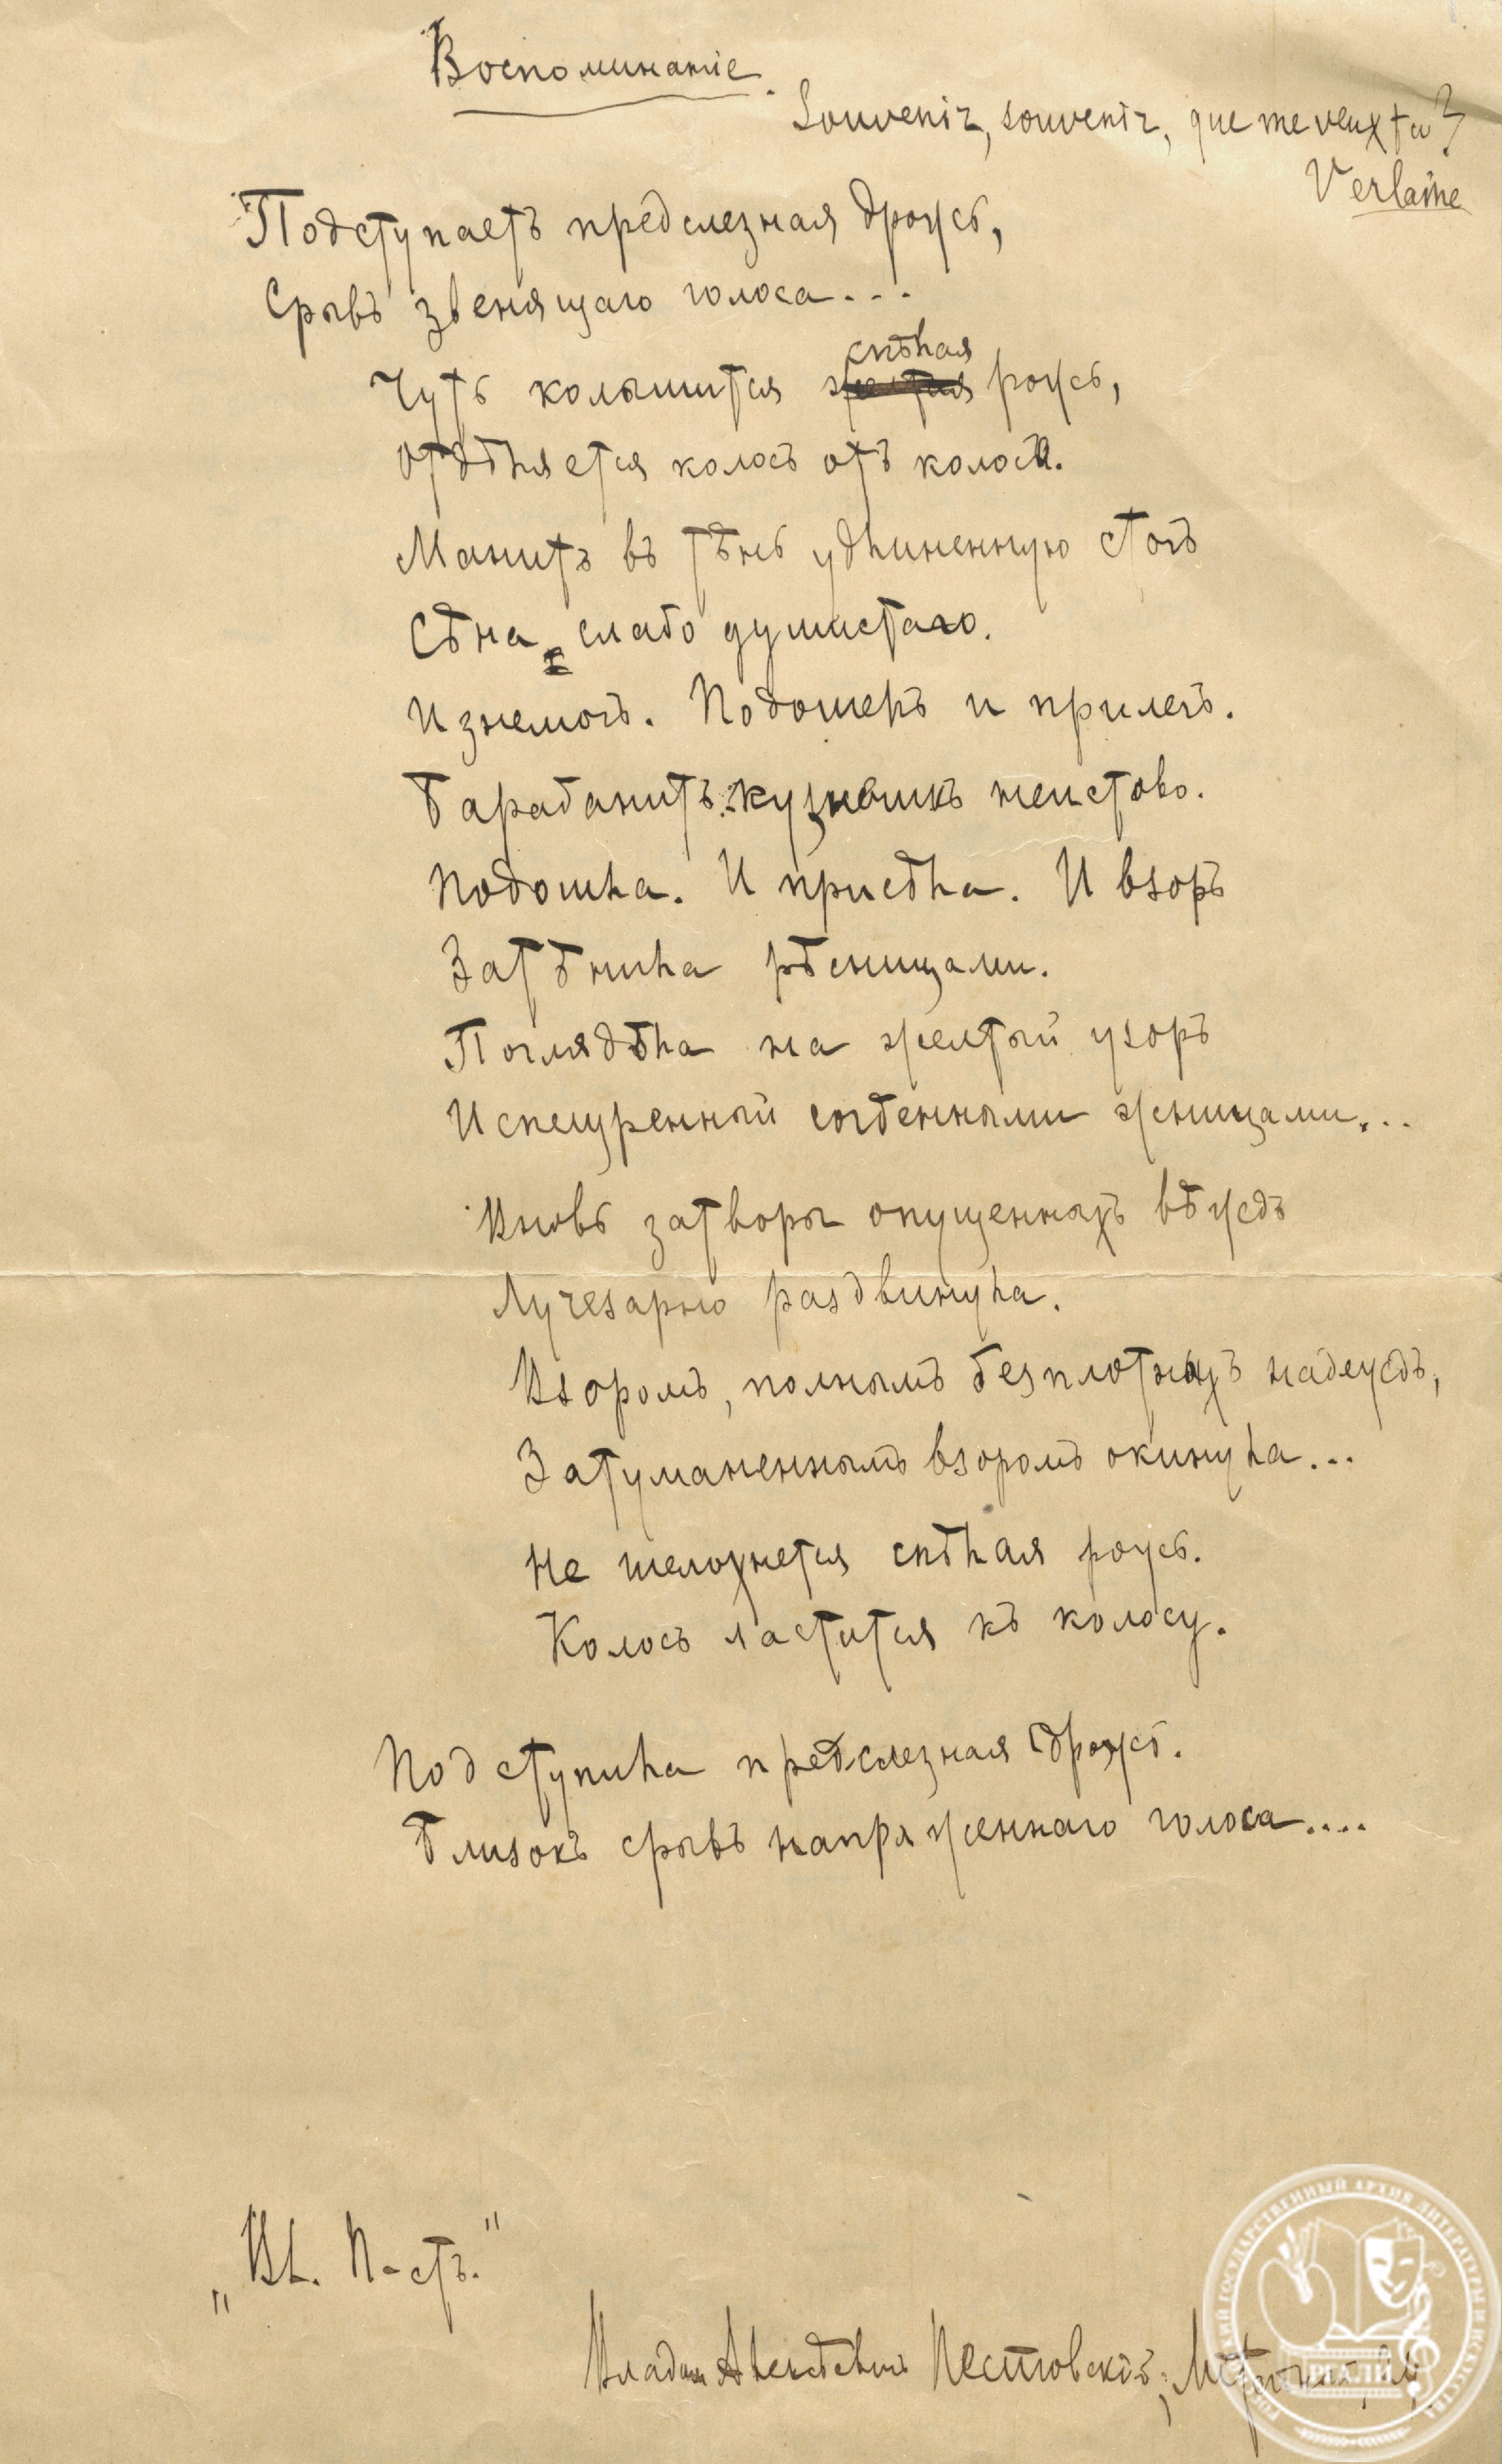 Воспоминанiе.
Souvenir, souvenir, que me veux tu?
Verlaine
Подступаетъ предслезная дрожь,
Срывъ звенящаго голоса...
спѣлая
Чуть колышится желтая рожь,
Отдѣляется колосъ отъ колоса.
Манитъ въ тѣнь удлиненную стогъ
Сѣна, слабо душистаго.
Изнемогъ. Подошелъ и прилегъ.
Барабанитъ кузнечикъ неистово.
Подошла. И присѣла. И взоръ
Затѣнила рѣсницами.
Поглядѣла на желтый узоръ
Испещренный согбенными жницами...
Вновь затворы опущенныхъ вѣждъ
Лучезарно раздвинула.
Взоромъ, полнымъ безплотныхъ надеждъ,
Затуманеннымъ взоромъ окинула...
Не шелохнется спѣлая рожь.
Колосъ ластится къ колосу.
Подступила предслезная дрожь.
Близокъ срывъ напряженнаго голоса....
„Вл. П-стъ."
Владим Алексѣевичъ Пестовскiй;
РОССИЙСКИЙ ГОСУДАРСТВЕННЫЙ АРХИВ ЛИТЕРАТУРЫ И ИСКУССТВА
РГАЛИ